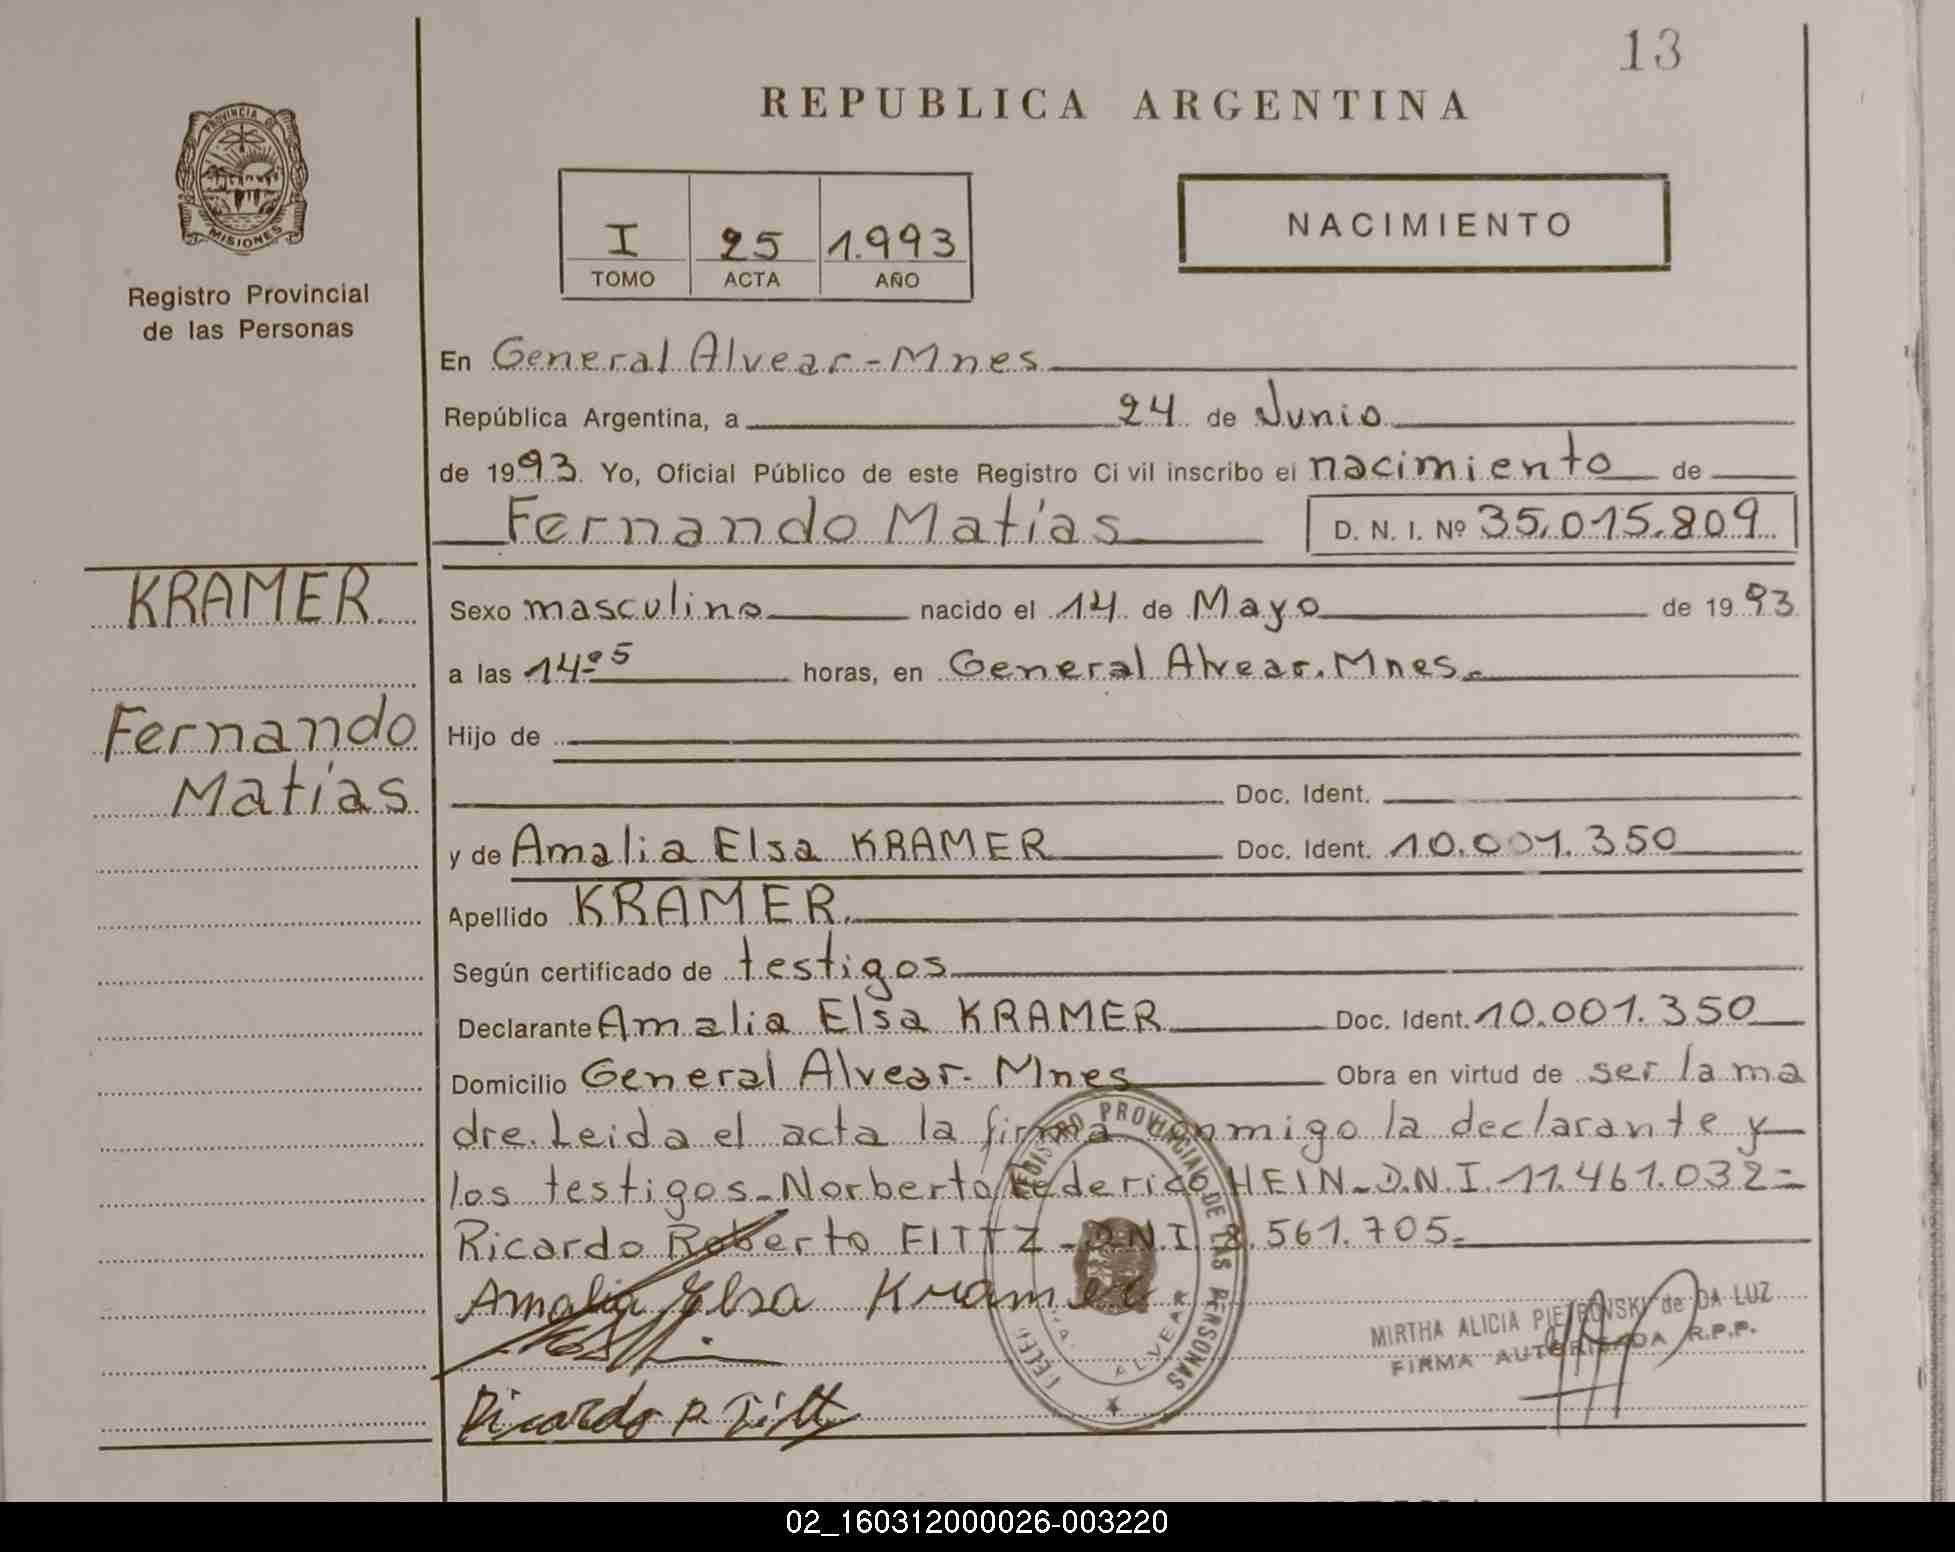 13
REPUBLICA ARGENTINA
PROVINCIA DE
MISIONES
Registro Provincial
de las Personas
I 25 1.993
TOMO ACTA AÑO
NACIMIENTO
En General Alvear-Mnes
República Argentina, a 24 de Junio
de 1993. Yo, Oficial Público de este Registro Civil inscribo el nacimiento de
Fernando Matías D. N. I. Nº 35.015.809
KRAMER
Fernando
Matías
Sexo masculino nacido el 14 de Mayo de 1993
a las 14º5 horas, en General Alvear. Mnes.
Hijo de
Doc. Ident.
y de Amalia Elsa KRAMER Doc. Ident. 10.001.350
Apellido KRAMER.
Según certificado de testigos
Declarante Amalia Elsa KRAMER Doc. Ident. 10.001.350
Domicilio General Alvear. Mnes Obra en virtud de ser la ma
dre. Leida el acta la firma conmigo la declarante y
los testigos-Norberto Federico HEIN-D.N.I. 11.461.032=
Ricardo Roberto FITTZ-D.N.I. 8.561.705.
Amalia Elsa Kramer
Ricardo R. Fittz
REGISTRO PROVINCIAL DE LAS PERSONAS
ALVEAR
MIRTHA ALICIA PIETROVSKI de DA LUZ
FIRMA AUTORIZADA R.P.P.
02_160312000026-003220